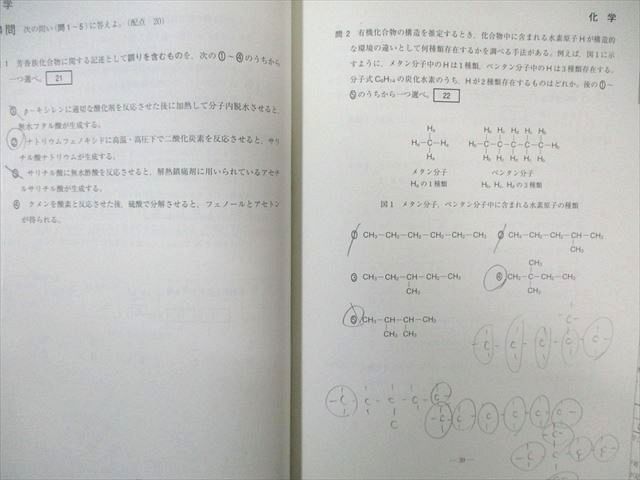 学
問 次の問い(問1～5)に答えよ。(配点 20)
1 芳香族化合物に関する記述として誤りを含むものを、次の①～④のうちから
一つ選べ。 21
-キシレンに適切な酸化剤を反応させた後に加熱して分子内脱水させると、
無水フタル酸が生成する。
② ナトリウムフェノキシドに高温・高圧下で二酸化炭素を反応させると、サリ
チル酸ナトリウムが生成する。
③ サリチル酸に無水酢酸を反応させると、解熱鎮痛剤に用いられているアセチ
ルサリチル酸が生成する。
④ クメンを酸素と反応させた後、硫酸で分解させると、フェノールとアセトン
が得られる。
化 学
問2 有機化合物の構造を推定するとき、化合物中に含まれる水素原子Hが構造的
な環境の違いとして何種類存在するかを調べる手法がある。例えば、図1に示
すように、メタン分子中のHは1種類、ペンタン分子中のHは3種類存在する。
分子式C₆H₁₄の炭化水素のうち、Hが2種類存在するものはどれか。後の①～
⑤のうちから一つ選べ。 22
メタン分子 ペンタン分子
Hₐの1種類 Hₐ、H_b、H_cの3種類
図1 メタン分子、ペンタン分子中に含まれる水素原子の種類
① CH₃-CH₂-CH₂-CH₂-CH₂-CH₃ ② CH₃-CH₂-CH₂-CH-CH₃
CH₃
CH₃
③ CH₃-CH₂-CH-CH₂-CH₃ ④ CH₃-C-CH₂-CH₃
CH₃ CH₃
⑤ CH₃-CH-CH-CH₃
CH₃ CH₃